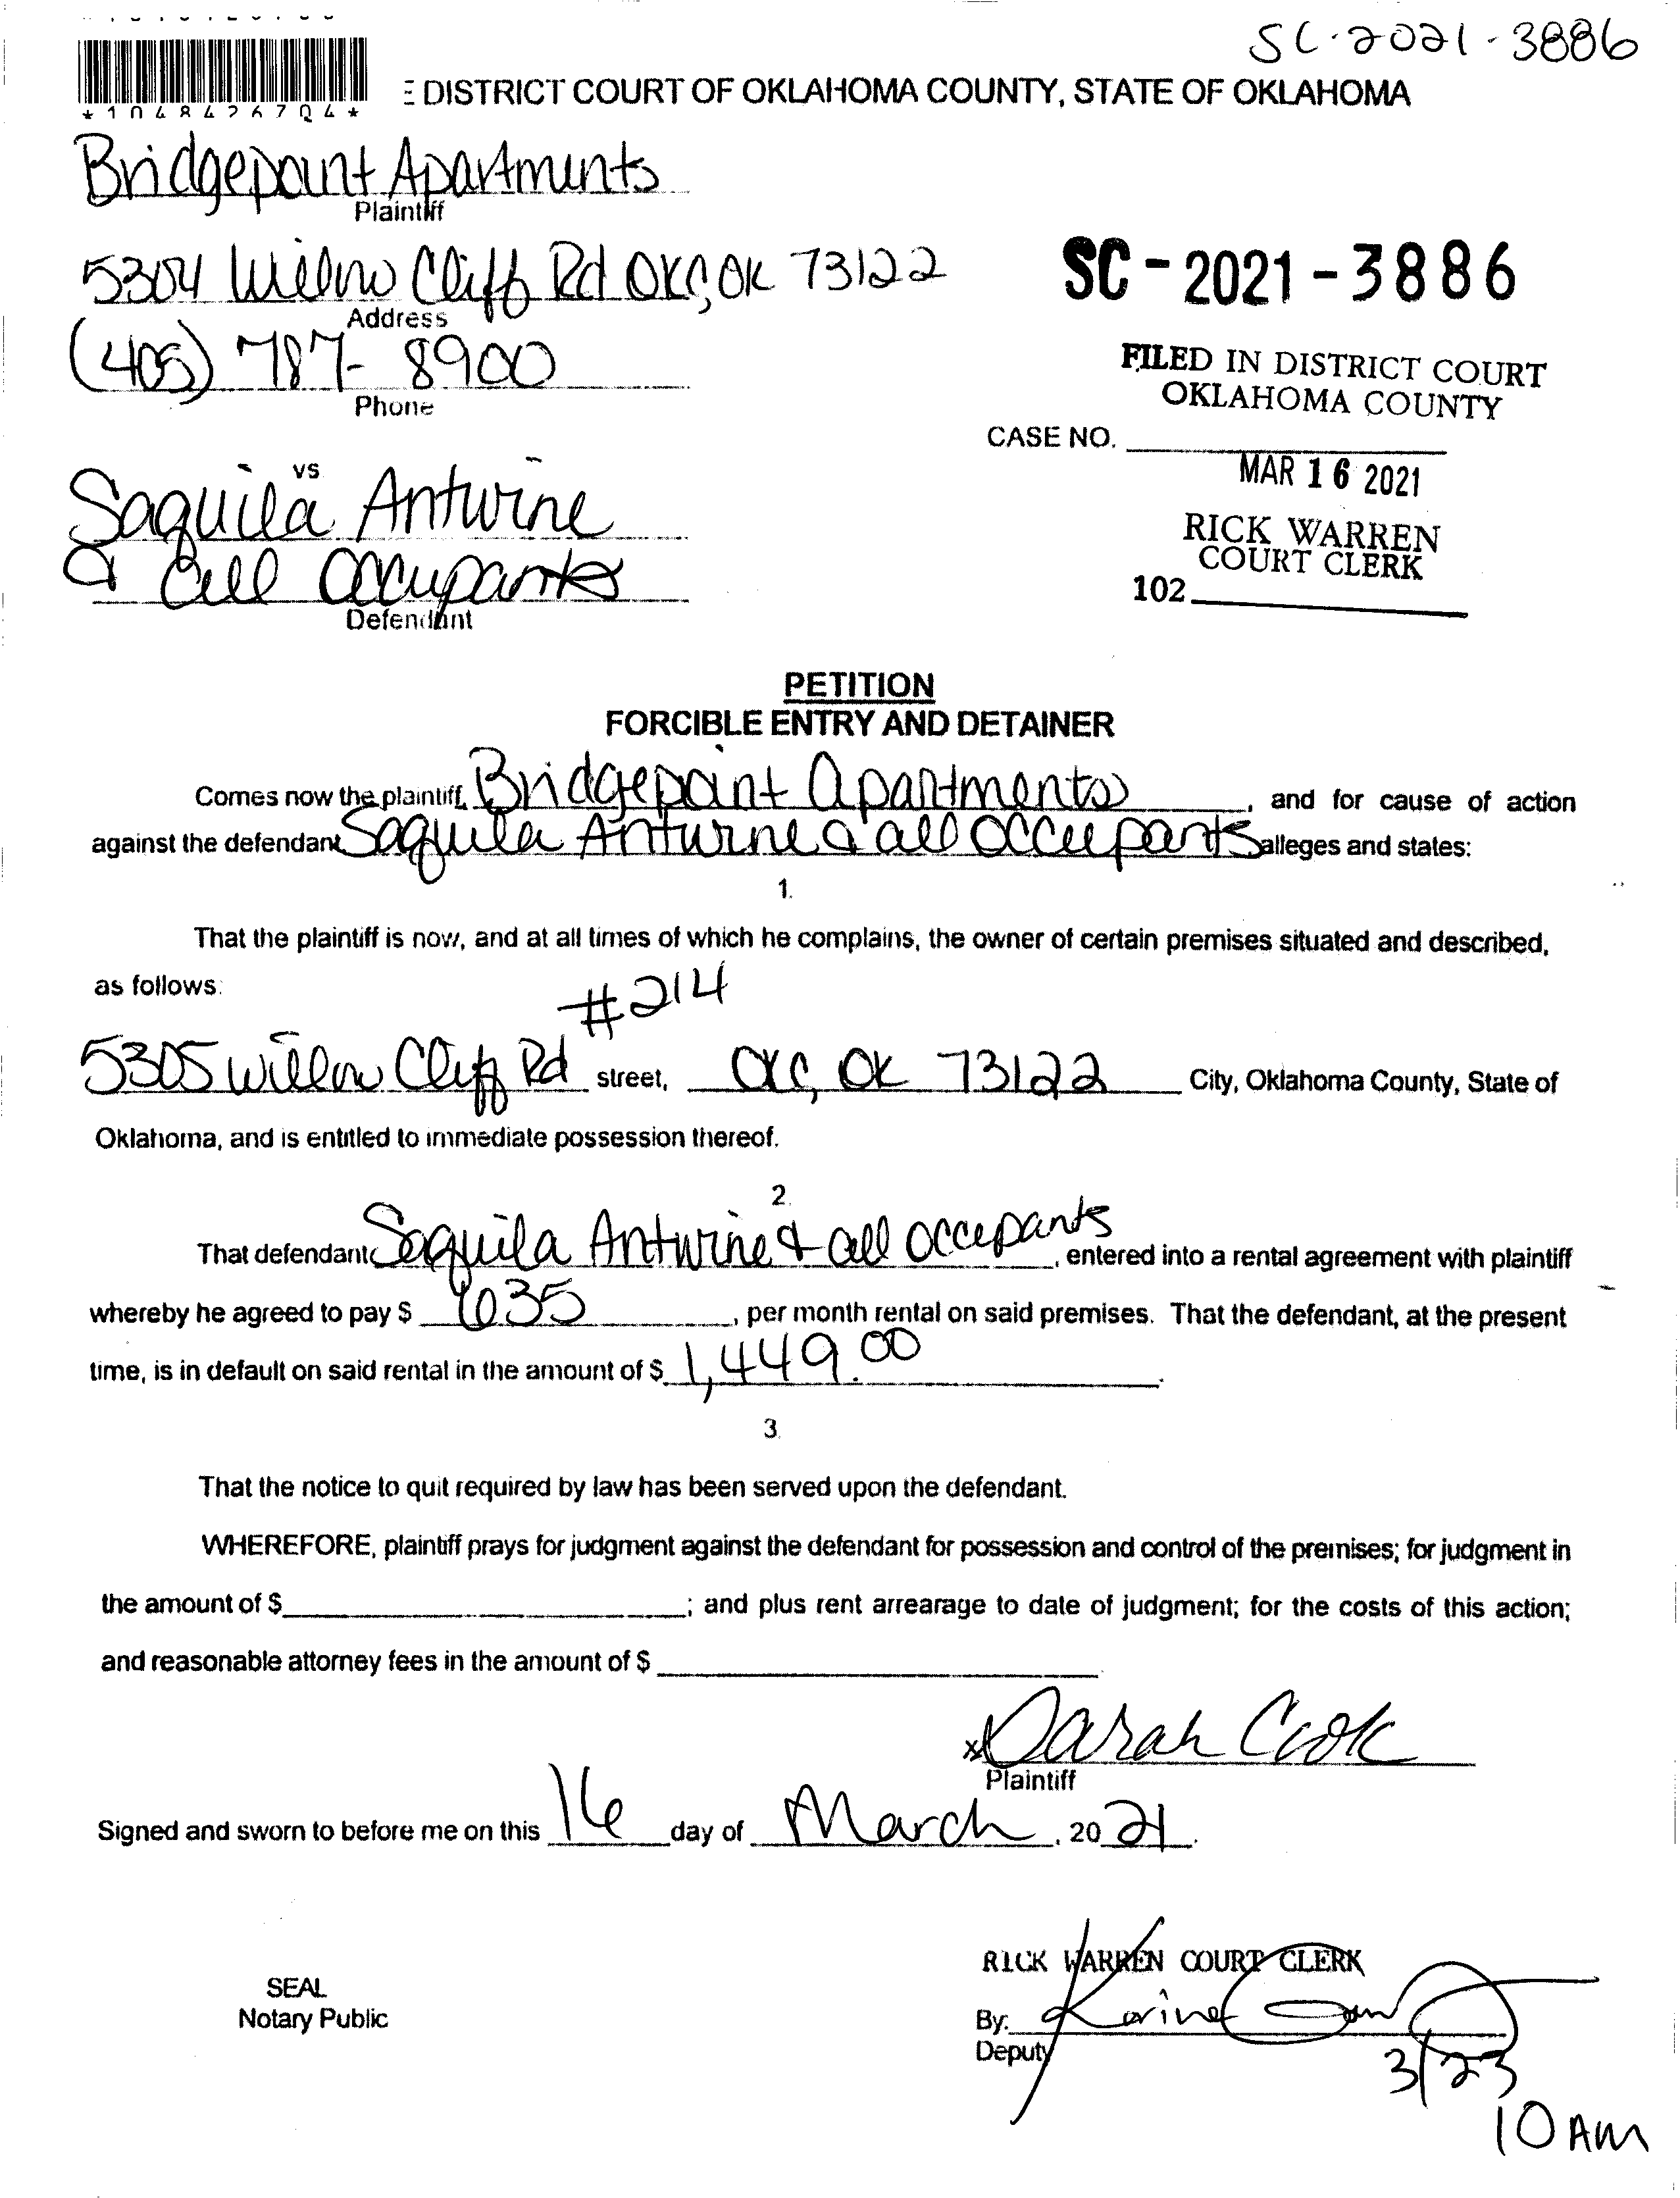 SC-2021-3886
DISTRICT COURT OF OKLAHOMA COUNTY, STATE OF OKLAHOMA
*1048426704*
Bridgepoint Apartments
Plaintiff
5304 Willow Cliff Rd OKC, OK 73122
Address
(405) 787-8900
Phone
SC-2021-3886
FILED IN DISTRICT COURT
OKLAHOMA COUNTY
CASE NO.
MAR 16 2021
RICK WARREN
COURT CLERK
102
vs
Saquila Antwine
& all occupants
Defendant
PETITION
FORCIBLE ENTRY AND DETAINER
Comes now the plaintiff, Bridgepoint Apartments, and for cause of action
against the defendant Saquila Antwine & all occupants alleges and states:
1.
That the plaintiff is now, and at all times of which he complains, the owner of certain premises situated and described,
as follows:
#214
5305 Willow Cliff Rd street, OKC, OK 73122 City, Oklahoma County, State of
Oklahoma, and is entitled to immediate possession thereof.
2.
That defendant Saquila Antwine & all occupants, entered into a rental agreement with plaintiff
whereby he agreed to pay $ 635, per month rental on said premises. That the defendant, at the present
time, is in default on said rental in the amount of $ 1,449.00.
3.
That the notice to quit required by law has been served upon the defendant.
WHEREFORE, plaintiff prays for judgment against the defendant for possession and control of the premises; for judgment in
the amount of $ ; and plus rent arrearage to date of judgment; for the costs of this action;
and reasonable attorney fees in the amount of $
x Sarah Cook
Plaintiff
Signed and sworn to before me on this 16 day of March, 2021.
SEAL
Notary Public
RICK WARREN COURT CLERK
By:
Deputy
3/23
10 AM